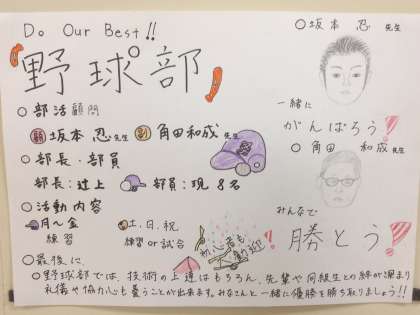 Do Our Best!!
「野球部」
○部活顧問
顧坂本 忍先生 副角田和成先生
○部長・部員
部長:辻上 部員:現8名
○活動内容
月〜金
練習
土、日、祝
練習or試合
初心者も
歓迎
○最後に
○野球部では、技術の上達はもちろん、先輩や同級生との絆が深まり
礼儀や協力心も養うことが出来ます。みなさんと一緒に優勝を勝ち取りましょう!!
○坂本 忍 先生
一緒に
がんばろう!
○角田 和成 先生
みんなで
勝とう!